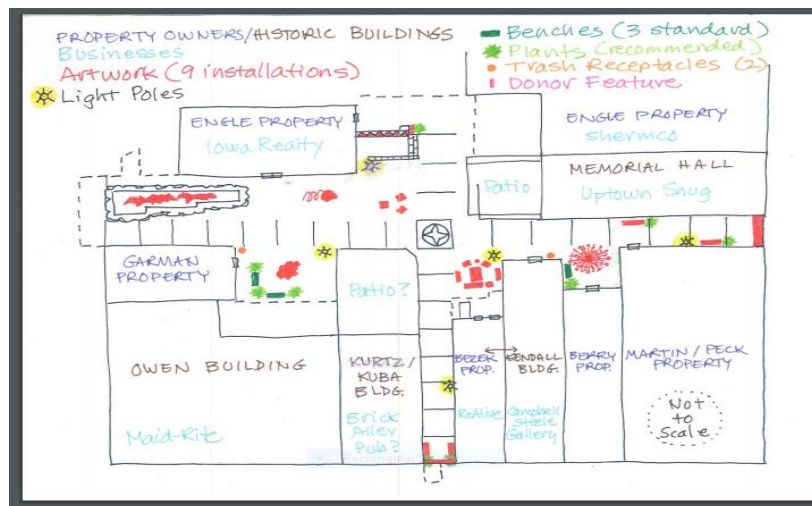 PROPERTY OWNERS/HISTORIC BUILDINGS
Businesses
Artwork (9 installations)
Light Poles
Benches (3 standard)
Plants (recommended)
Trash Receptacles (2)
Donor Feature
ENGLE PROPERTY
Iowa Realty
ENGLE PROPERTY
Shermco
MEMORIAL HALL
Patio
Uptown Snug
GARMAN
PROPERTY
Patio?
OWEN BUILDING
Maid-Rite
KURTZ/
KUBA
BLDG.
Brick
Alley
Pub?
BEZEK
PROP.
ReAlive
KENDALL
BLDG.
Campbell
Steele
Gallery
BERRY
PROP.
MARTIN/PECK
PROPERTY
Not
to
Scale